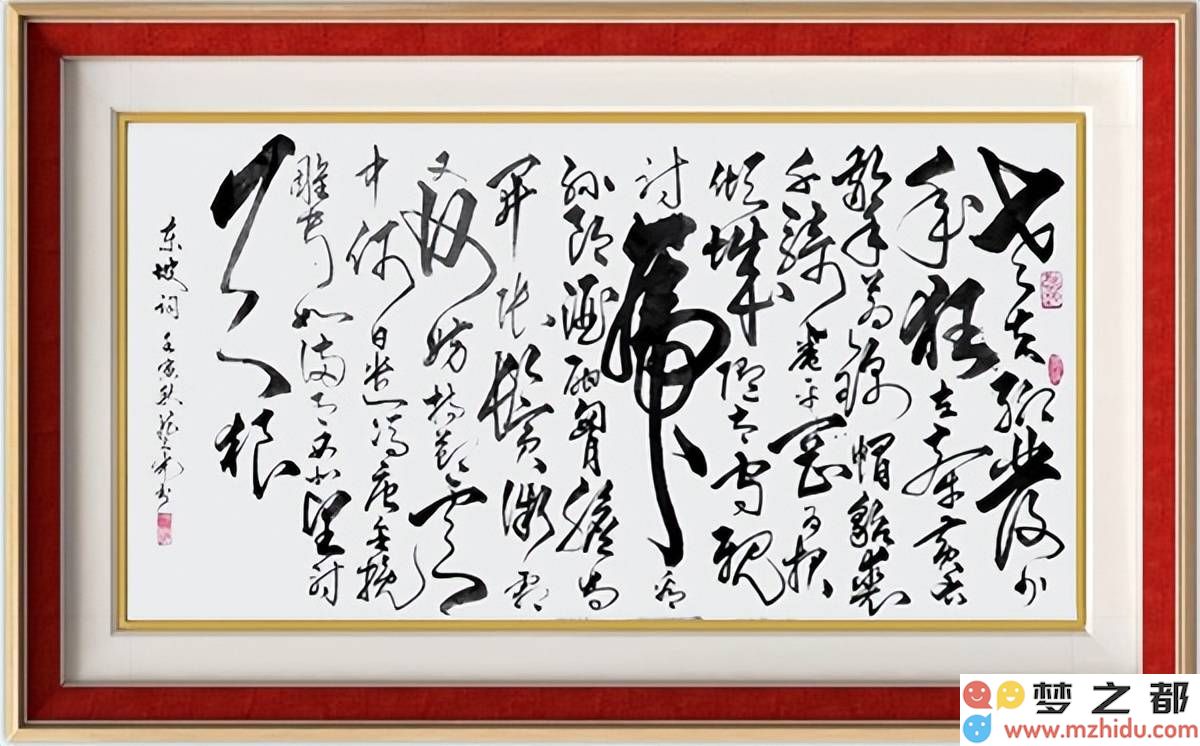 老夫聊发少
年狂左牵黄右
擎苍锦帽貂裘
千骑卷平冈为报
倾城随太守亲
射虎看
孙郎酒酣胸胆尚
开张鬓微霜
又何妨持节云
中何日遣冯唐会挽
雕弓如满月西北望射
天狼
东坡词 壬寅秋 书
梦之都
www.mzhidu.com